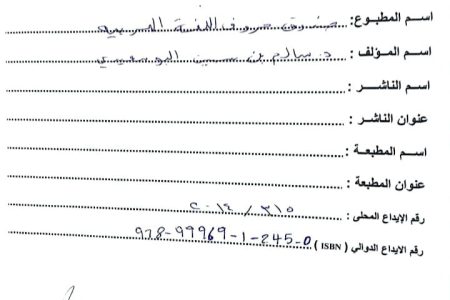 اسم المطبوع: صندوق حروف اللغة العربية
اسم المؤلف: د. سالم بن البوسعيدي
اسم الناشر:
عنوان الناشر:
اسم المطبعة:
عنوان المطبعة:
رقم الإيداع المحلي: ٣١٥ / ٢٠١٤
رقم الإيداع الدولي ( ISBN ) 978-99969-1-245-0